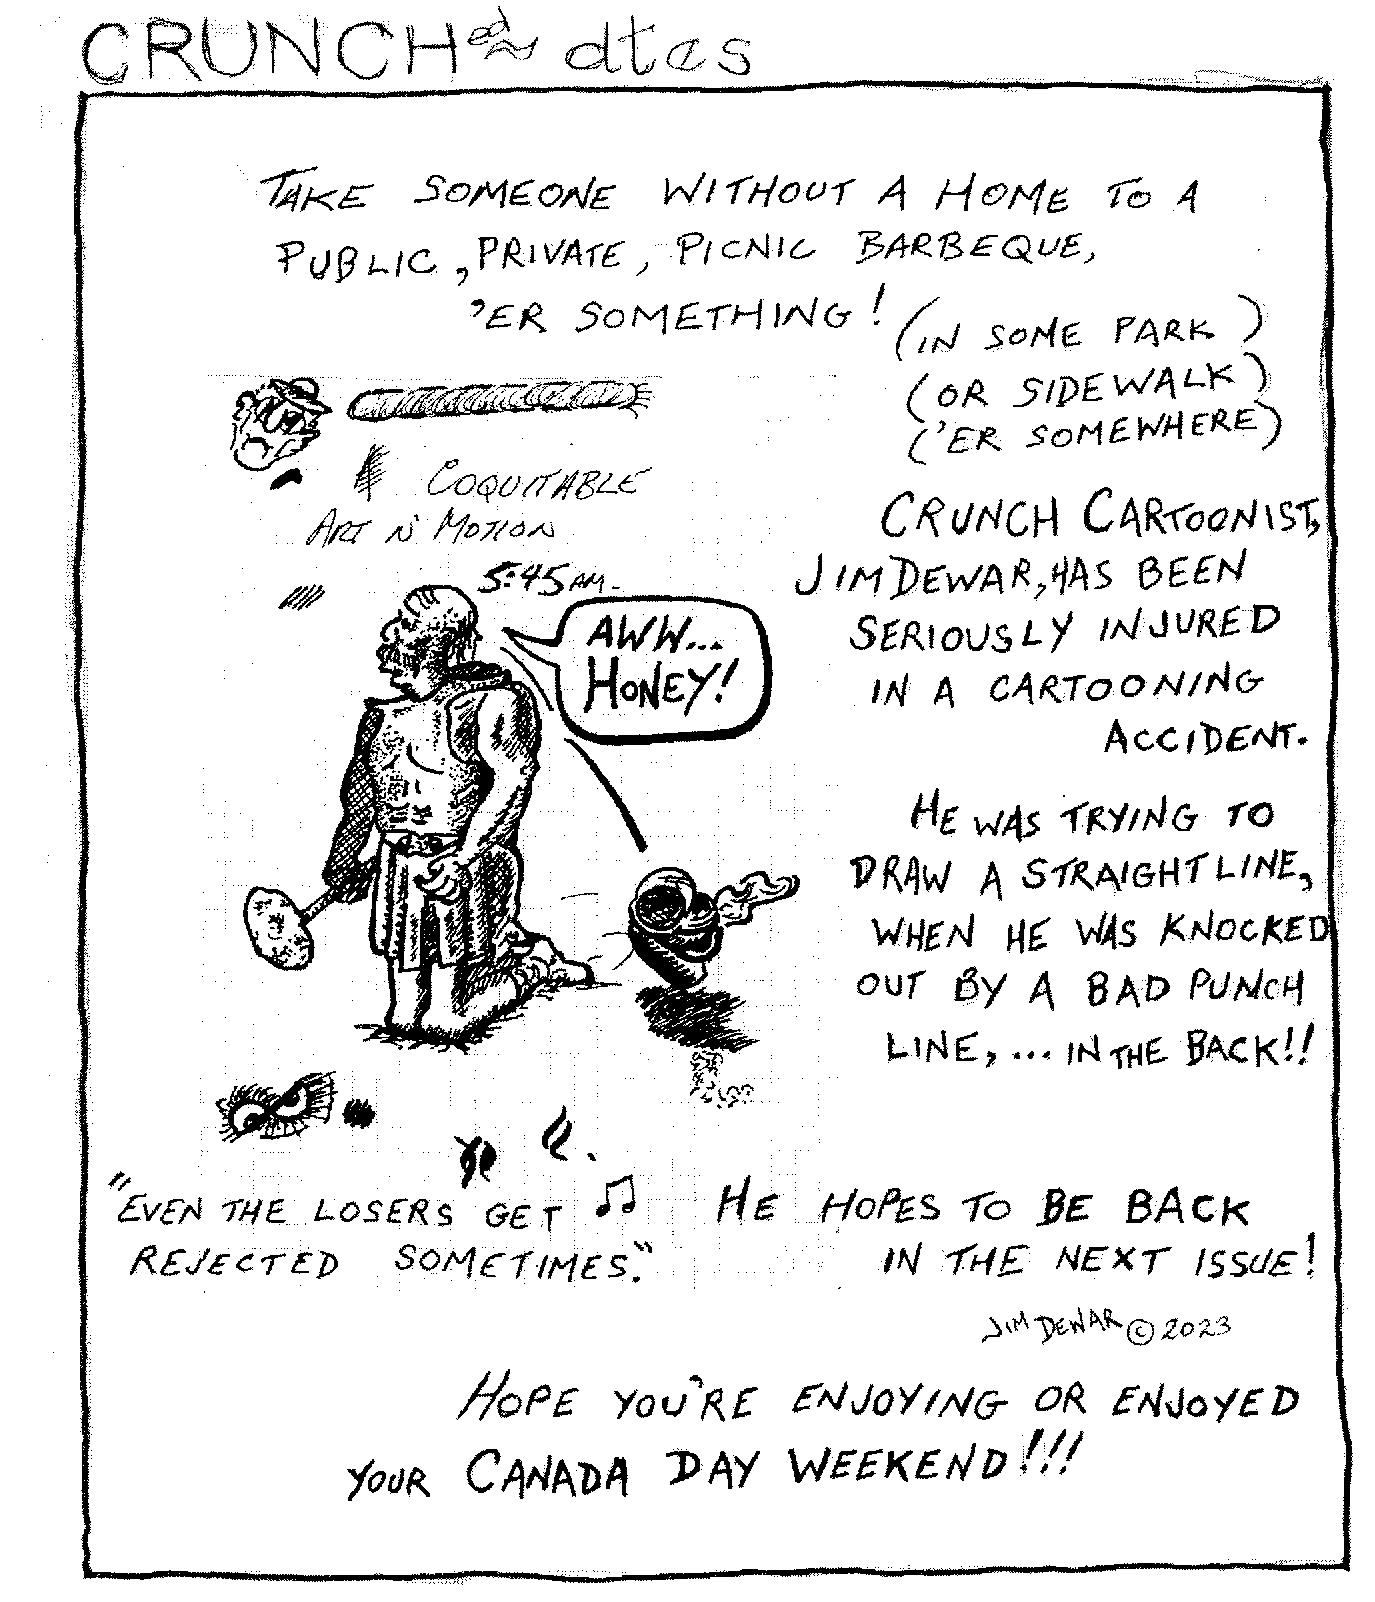 CRUNCHed dtes
TAKE SOMEONE WITHOUT A HOME TO A
PUBLIC, PRIVATE, PICNIC BARBEQUE,
'ER SOMETHING! (IN SOME PARK)
(OR SIDEWALK)
('ER SOMEWHERE)
COQUITABLE
ART N' MOTION
5:45 AM-
AWW...
HONEY!
CRUNCH CARTOONIST,
JIM DEWAR, HAS BEEN
SERIOUSLY INJURED
IN A CARTOONING
ACCIDENT.
HE WAS TRYING TO
DRAW A STRAIGHT LINE,
WHEN HE WAS KNOCKED
OUT BY A BAD PUNCH
LINE, ... IN THE BACK!!
"EVEN THE LOSERS GET ♫
REJECTED SOMETIMES."
HE HOPES TO BE BACK
IN THE NEXT ISSUE!
JIM DEWAR © 2023
HOPE YOU'RE ENJOYING OR ENJOYED
YOUR CANADA DAY WEEKEND!!!